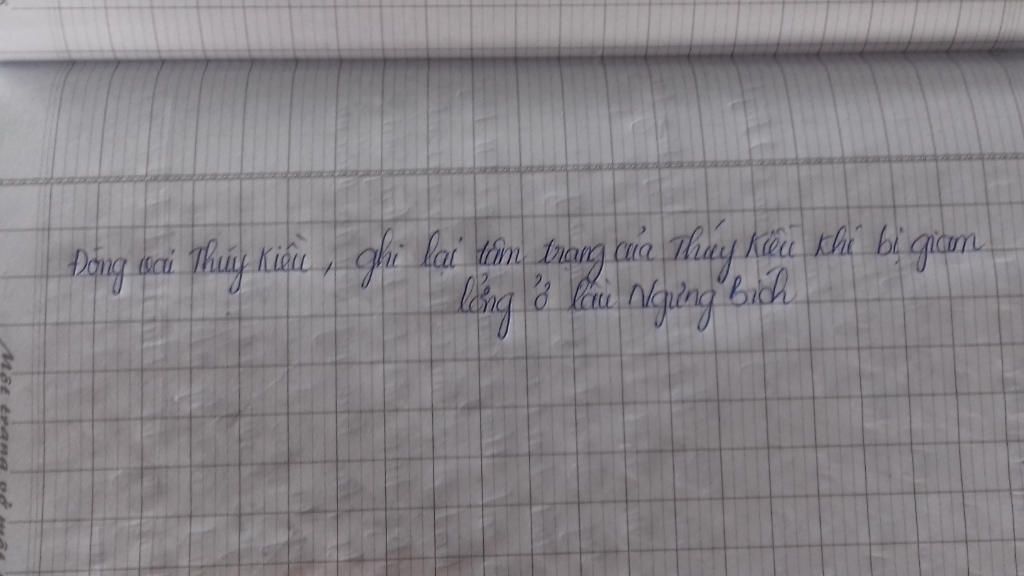 Đóng vai Thúy Kiều, ghi lại tâm trạng của Thúy Kiều khi bị giam
lỏng ở lầu Ngưng Bích